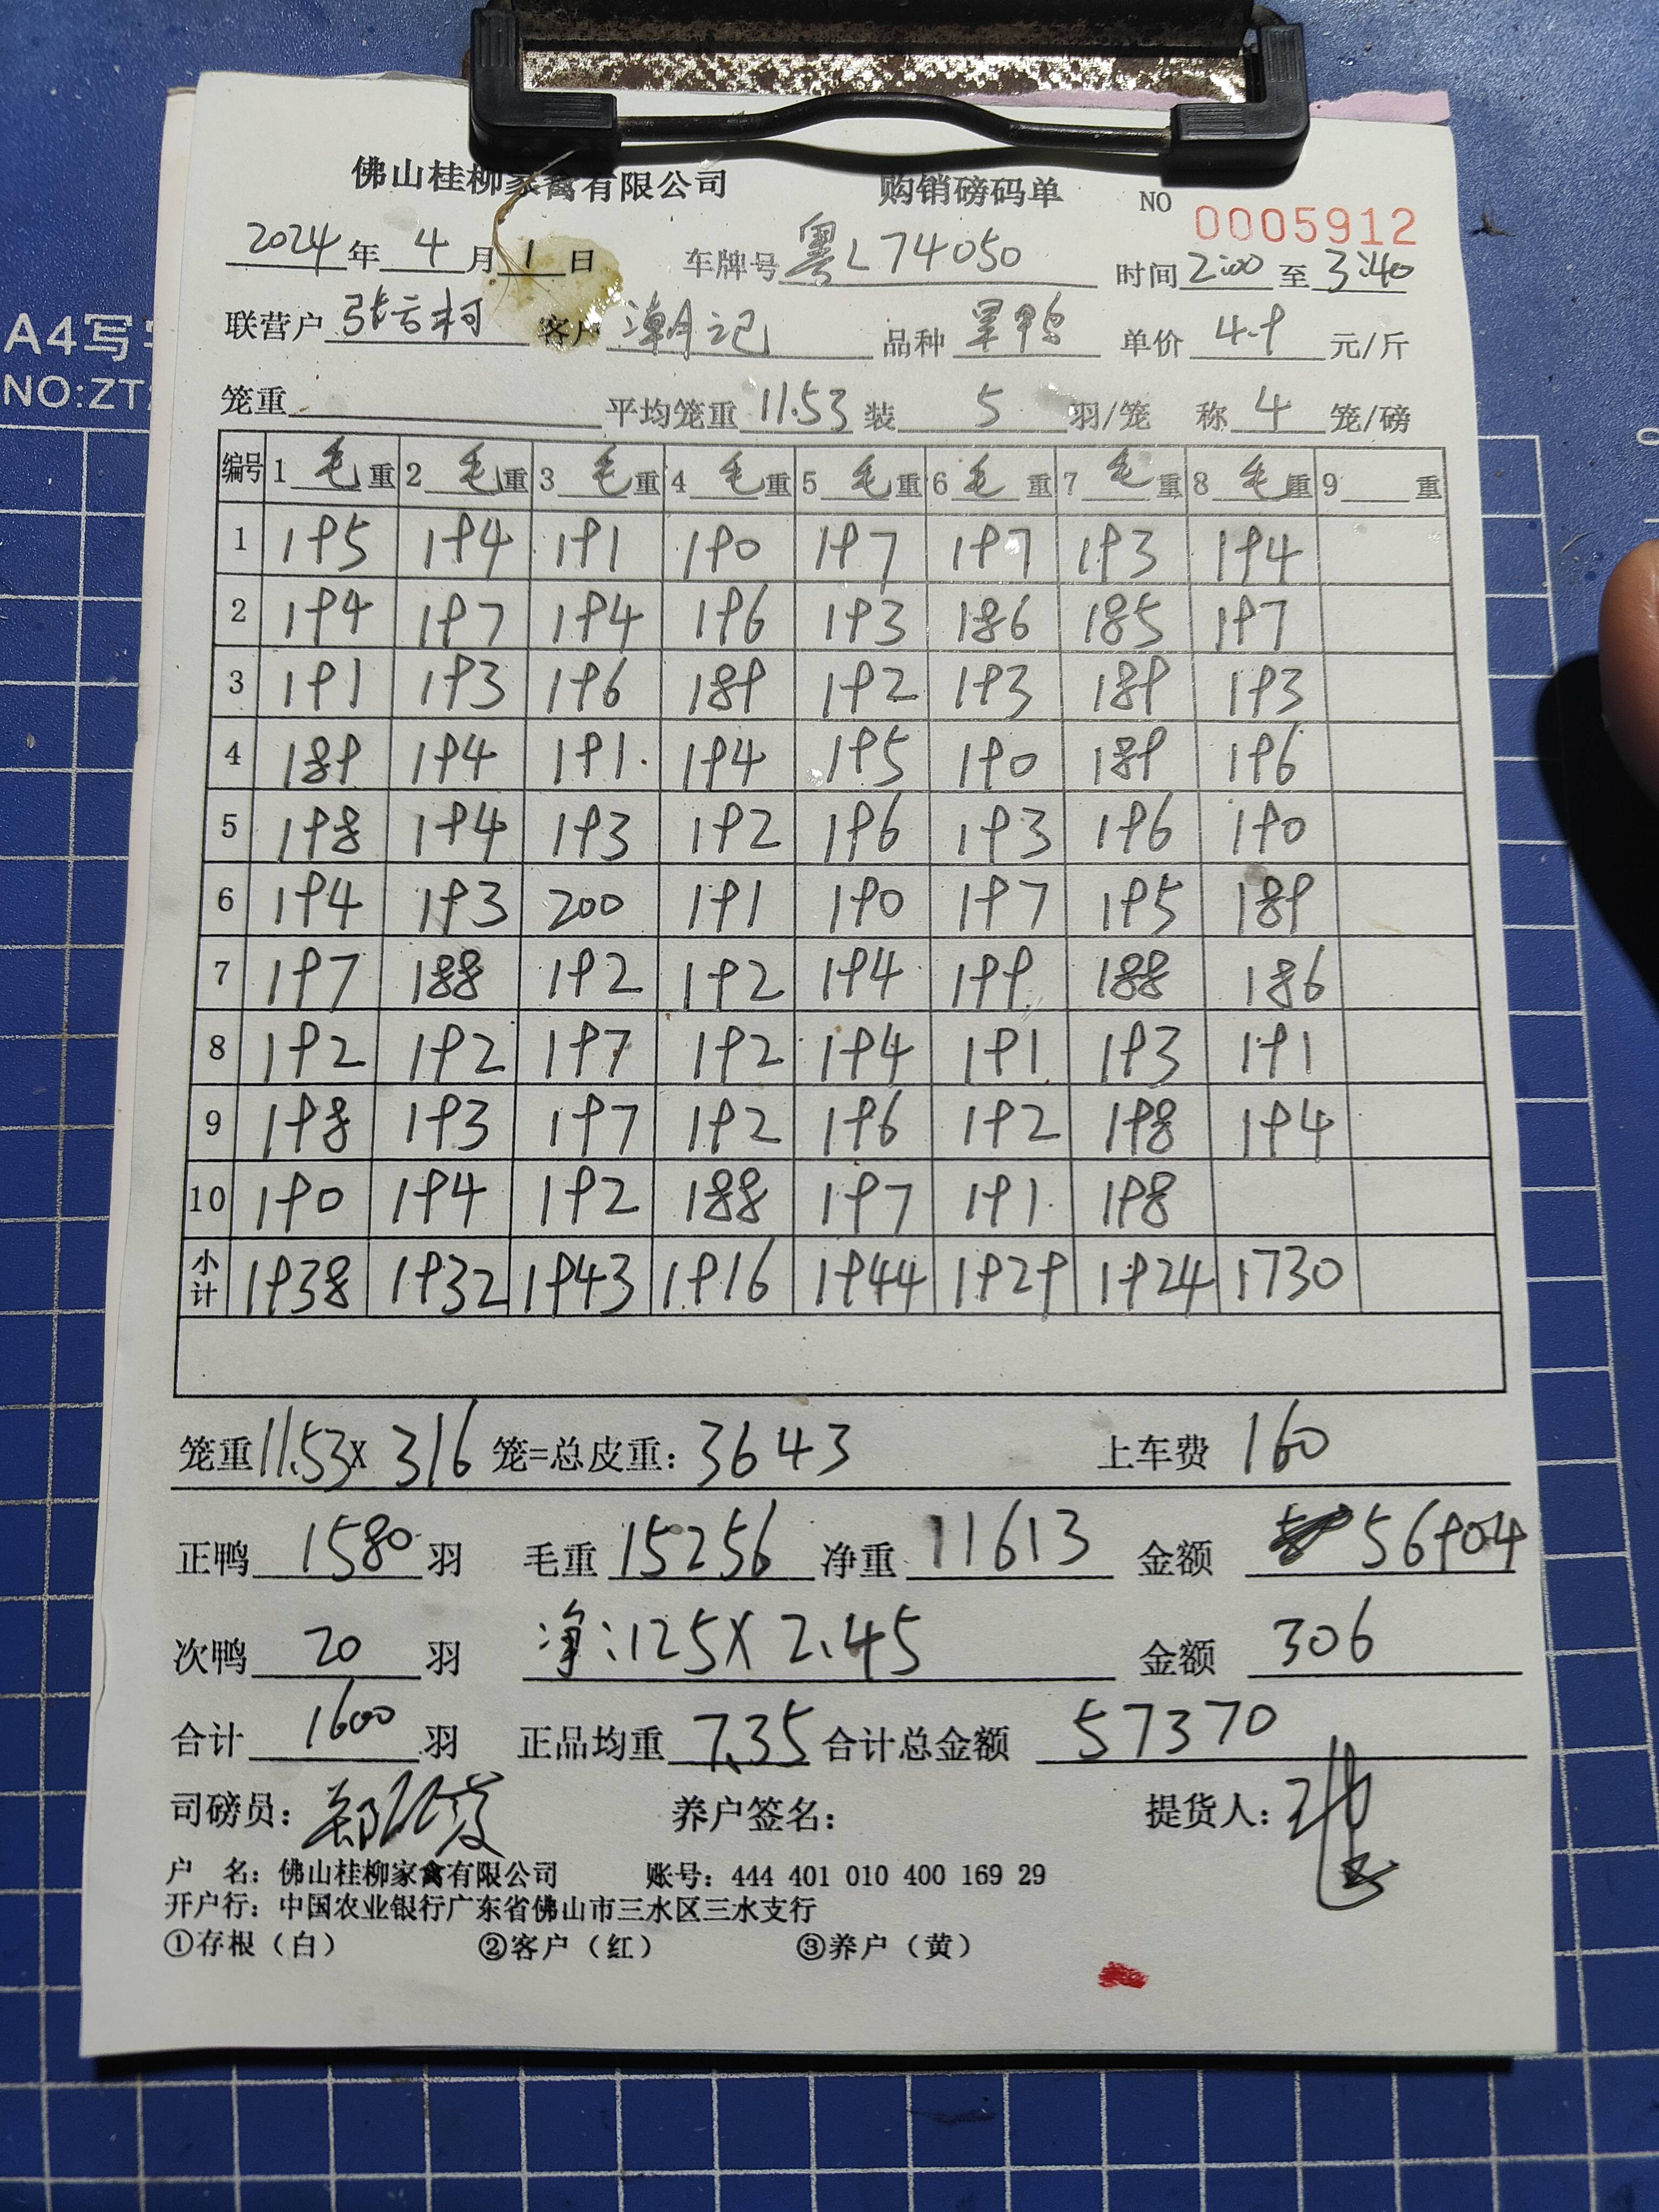 佛山桂柳家禽有限公司 购销磅码单 NO 0005912
2024年4月1日 车牌号粤L74050 时间2:00至3:40
联营户张云柯 客户潮记 品种 单价4.9元/斤
A4写字
NO:ZT
笼重 平均笼重11.53装5羽/笼 称4笼/磅
编号 1毛重 2毛重 3毛重 4毛重 5毛重 6毛重 7毛重 8毛重 9重
1 195 194 191 190 197 197 193 194
2 194 197 194 196 193 186 185 197
3 191 193 196 189 192 193 189 193
4 189 194 191 194 195 190 189 196
5 198 194 193 192 196 193 196 190
6 194 193 200 191 190 197 195 189
7 197 188 192 192 194 199 188 186
8 192 192 197 192 194 191 193 191
9 198 193 197 192 196 192 198 194
10 190 194 192 188 197 191 198
小计 1938 1932 1943 1916 1944 1929 1924 1730
笼重11.53X316笼=总皮重:3643 上车费160
正鸭1580羽 毛重15256净重11613 金额56904
次鸭20羽 净:125X2.45 金额306
合计1600羽 正品均重7.35合计总金额57370
司磅员: 养户签名: 提货人:
户 名:佛山桂柳家禽有限公司 账号:444 401 010 400 169 29
开户行:中国农业银行广东省佛山市三水区三水支行
①存根(白) ②客户(红) ③养户(黄)